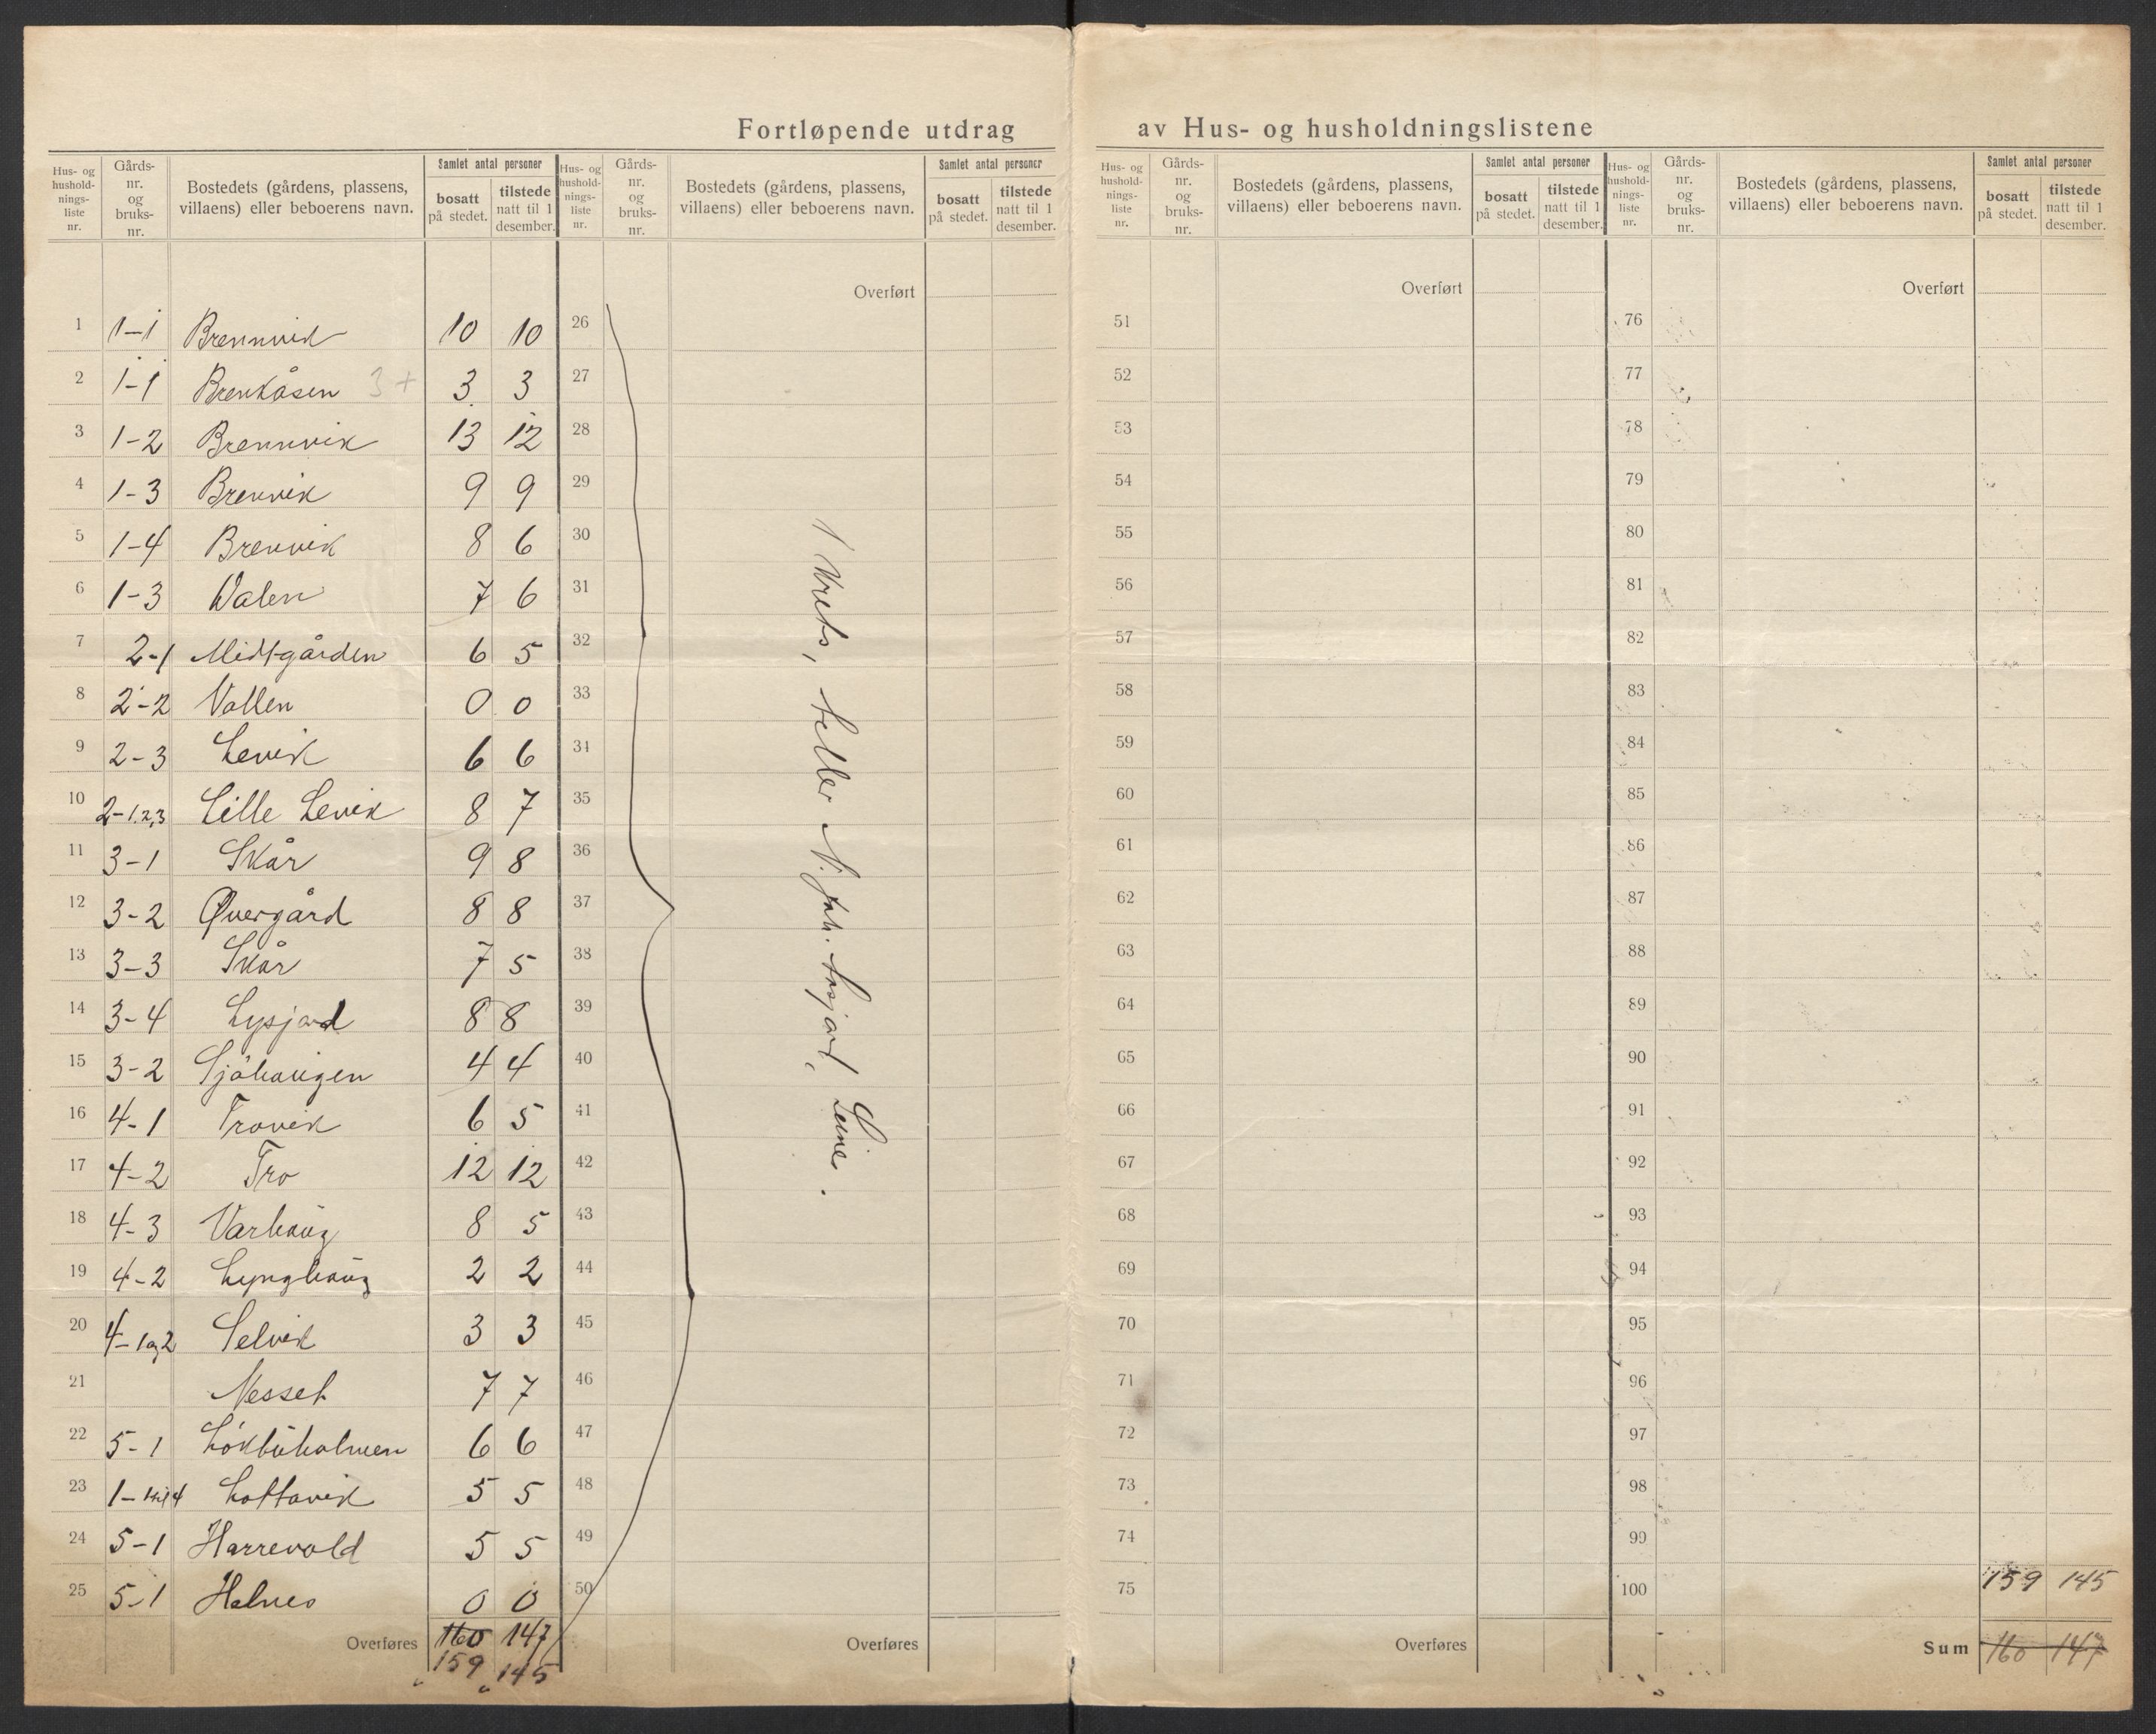 Fortløpende utdrag av Hus- og husholdningslistene
Hus- og husholdnings-liste nr. | Gårds-nr. og bruks-nr. | Bostedets (gårdens, plassens, villaens) eller beboerens navn. | Samlet antal personer | bosatt på stedet. | tilstede natt til 1 desember.
1 1-1 Brennvik 10 10
2 1-1 Brenkåsen 3+ 3 3
3 1-2 Brennvik 13 12
4 1-3 Brenvik 9 9
5 1-4 Brenvik 8 6
6 1-3 Valen 7 6
7 2-1 Midtgården 6 5
8 2-2 Vollen 0 0
9 2-3 Levik 6 6
10 2-1,2,3 Lille Levik 8 7
11 3-1 Skår 9 8
12 3-2 Øvergård 8 8
13 3-3 Skår 7 5
14 3-4 Lysjord 8 8
15 3-2 Sjöhaugen 4 4
16 4-1 Trovik 6 5
17 4-2 Tro 12 12
18 4-3 Varhaug 8 5
19 4-2 Lynghaug 2 2
20 4-1og2 Selvik 3 3
21 Nesset 7 7
22 5-1 Lökbuholmen 6 6
23 1-1til4 Lottavik 5 5
24 5-1 Harrevold 5 5
25 5-1 Halnes 0 0
Overføres 160 147
159 145
Hus- og husholdnings-liste nr. | Gårds-nr. og bruks-nr. | Bostedets (gårdens, plassens, villaens) eller beboerens navn. | Samlet antal personer | bosatt på stedet. | tilstede natt til 1 desember.
Overført
26
27
28
29
30
31
32
33
34
35
36
37
38
39
40
41
42
43
44
45
46
47
48
49
50
Overføres
1 Krets, teller N. Joh. Lysjord, Leine.
Hus- og husholdnings-liste nr. | Gårds-nr. og bruks-nr. | Bostedets (gårdens, plassens, villaens) eller beboerens navn. | Samlet antal personer | bosatt på stedet. | tilstede natt til 1 desember.
Overført
51
52
53
54
55
56
57
58
59
60
61
62
63
64
65
66
67
68
69
70
71
72
73
74
75
Overføres
Hus- og husholdnings-liste nr. | Gårds-nr. og bruks-nr. | Bostedets (gårdens, plassens, villaens) eller beboerens navn. | Samlet antal personer | bosatt på stedet. | tilstede natt til 1 desember.
Overført
76
77
78
79
80
81
82
83
84
85
86
87
88
89
90
91
92
93
94
95
96
97
98
99
100 159 145
Sum 160 147